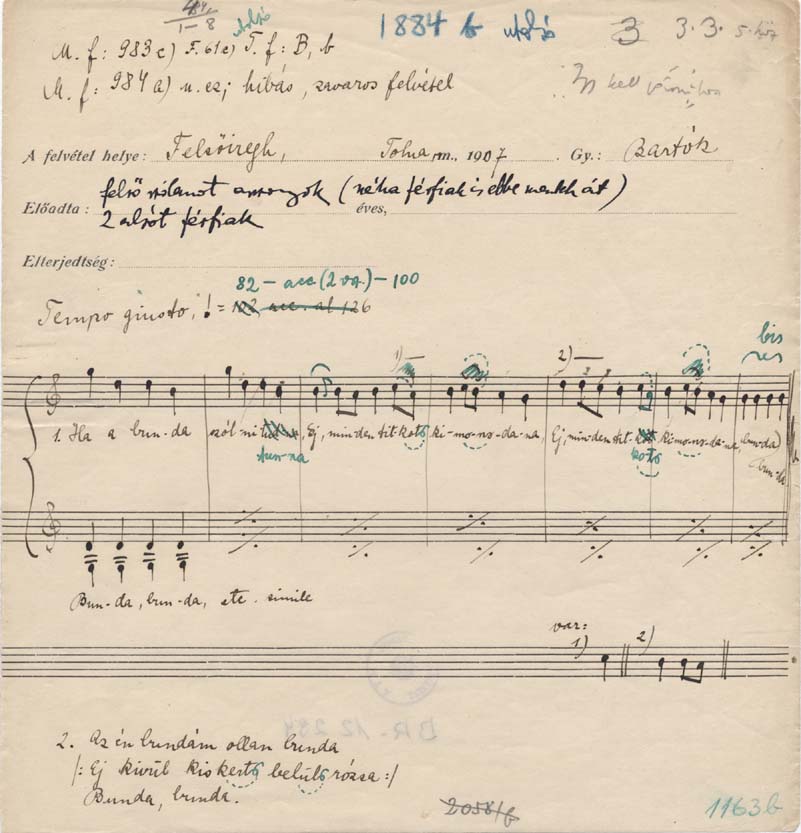 1–8
utolsó
1884 b utolsó
3
3.3.
M. f: 983c) F. 61c) T. f: B, b
M. f: 984 a) u. ez; hibás, zavaros felvétel
kell
A felvétel helye: Felsőiregh, Tolna m., 1907. Gy.: Bartók
Előadta: felső szólamot asszonyok (néha férfiak is ebbe mennek át)
2 alsót férfiak éves,
Elterjedtség:
82 – acc (2 va.) – 100
Tempo giusto, = 122, acc. al 126
1) 2) bis
1. Ha a bun-da szól-ni tud-na, Ej, min-den tit-kots ki-mo-no-da-na, Ej, min-den tit-kots ki-mo-no-da-na, bun-da)
tun-na kots bun-da
Bun-da, bun-da, stc. simile
var:
1) 2)
BR-12 284
2. Az én bundám ollan bunda
/: Ej kivül kiskerts belüls rózsa :/
Bunda, bunda.
2058/b
1163b